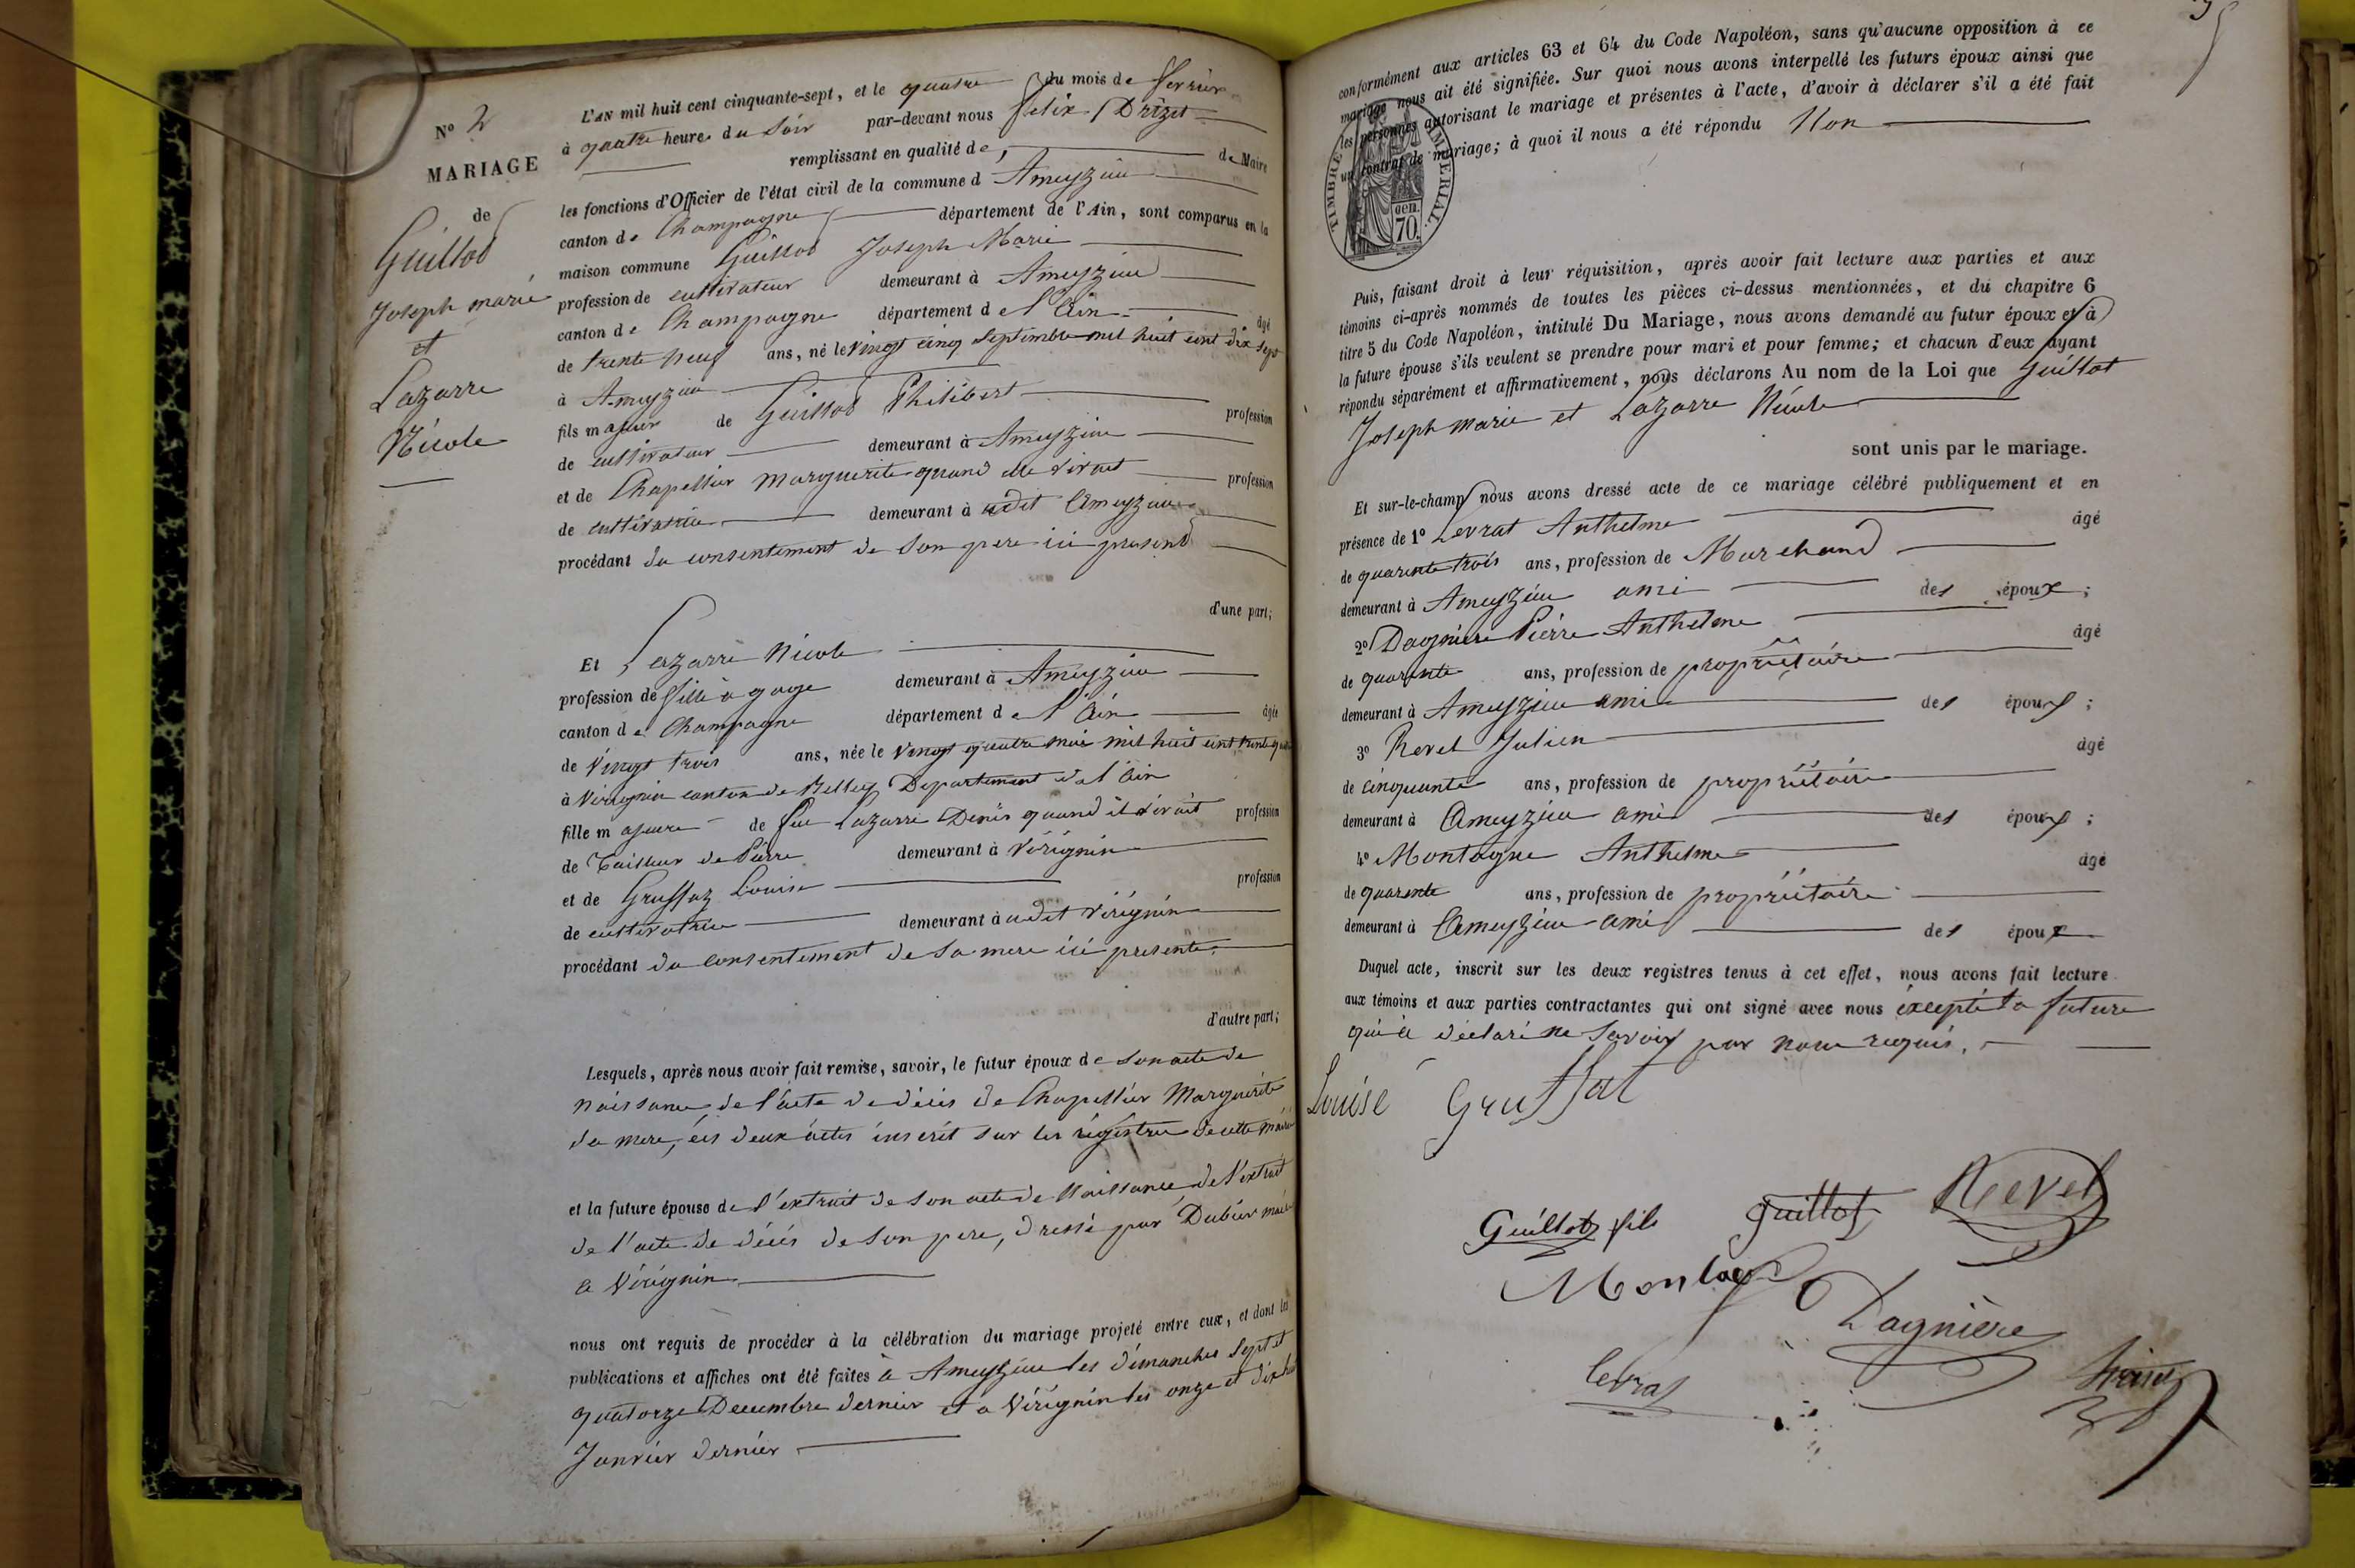 N° 2
MARIAGE
de
Guillod
Joseph marie
et
Lazarre
Nicole
L'AN mil huit cent cinquante-sept, et le quatre du mois de ferrier
à quatre heures du soir par-devant nous felix Drizet
remplissant en qualité de, de Maire
les fonctions d'Officier de l'état civil de la commune d Ameyzieu
canton de Champagne département de l'Ain, sont comparus en la
maison commune Guillod Joseph Marie
profession de cultivateur demeurant à Ameyzieu
canton de Champagne département de l'Ain âgé
de trente neuf ans, né le vingt cinq septembre mil huit cent dix sept
à Ameyzieu
fils majeur de Guillod Philibert profession
de cultivateur demeurant à Ameyzieu
et de Chapellier Marguerite quand elle vivait profession
de cultivatrice demeurant à udit Ameyzieu
procédant du consentement de son pere ici present
d'une part;
Et Lazarre Nicole
profession de fille à gage demeurant à Ameyzieu
canton de Champagne département de l'Ain âgée
de vingt trois ans, née le vingt quatre mai mil huit cent trente
à Virignin canton de Belley Departement de l'Ain
fille majeure de feu Lazarre Denis quand il vivait profession
de Tailleur de Pierre demeurant à Virignin
et de Gruffaz Louise profession
de cultivatrice demeurant à udit Virignin
procédant du consentement de sa mere ici presente.
d'autre part;
Lesquels, après nous avoir fait remise, savoir, le futur époux de son acte de
naissance, de l'acte de décés de Chapellier Marguerite
sa mere, ces deux actes inscrit sur les régistres de cette mairie
et la future épouse de l'extrait de son acte de Naissance de l'extrait
de l'acte de décés de son pere, dressé par Dubier maire
a Virignin
nous ont requis de procéder à la célébration du mariage projeté entre eux, et dont les
publications et affiches ont été faites à Ameyzieu les dimanches sept et
quatorze Decembre dernier et a Virignin les onze et dix huit
Janvier dernier
conformément aux articles 63 et 64 du Code Napoléon, sans qu'aucune opposition à ce
mariage nous ait été signifiée. Sur quoi nous avons interpellé les futurs époux ainsi que
les personnes autorisant le mariage et présentes à l'acte, d'avoir à déclarer s'il a été fait
un contrat de mariage; à quoi il nous a été répondu Non
TIMBRE IMPERIAL
gen.
70.
Puis, faisant droit à leur réquisition, après avoir fait lecture aux parties et aux
témoins ci-après nommés de toutes les pièces ci-dessus mentionnées, et du chapitre 6
titre 5 du Code Napoléon, intitulé Du Mariage, nous avons demandé au futur époux et à
la future épouse s'ils veulent se prendre pour mari et pour femme; et chacun d'eux ayant
répondu séparément et affirmativement, nous déclarons Au nom de la Loi que Guillot
Joseph marie et Lazarre Nicole
sont unis par le mariage.
Et sur-le-champ nous avons dressé acte de ce mariage célébré publiquement et en
présence de 1° Levrat Anthelme âgé
de quarente trois ans, profession de Marchand
demeurant à Ameyzieu ami des époux;
2° Dagniere Pierre Anthelme âgé
de quarente ans, profession de propriétaire
demeurant à Ameyzieu ami des époux;
3° Revel Julien âgé
de cinquante ans, profession de propriétaire
demeurant à Ameyzieu ami des époux;
4° Montagne Anthelme âgé
de quarente ans, profession de propriétaire
demeurant à Ameyzieu ami des époux
Duquel acte, inscrit sur les deux registres tenus à cet effet, nous avons fait lecture
aux témoins et aux parties contractantes qui ont signé avec nous éxcepté la future
qui a déclaré ne savoir par nous requis.
Louise Gruffat
Guillot fils guillot Revel
Montag
Dagnière
levrat